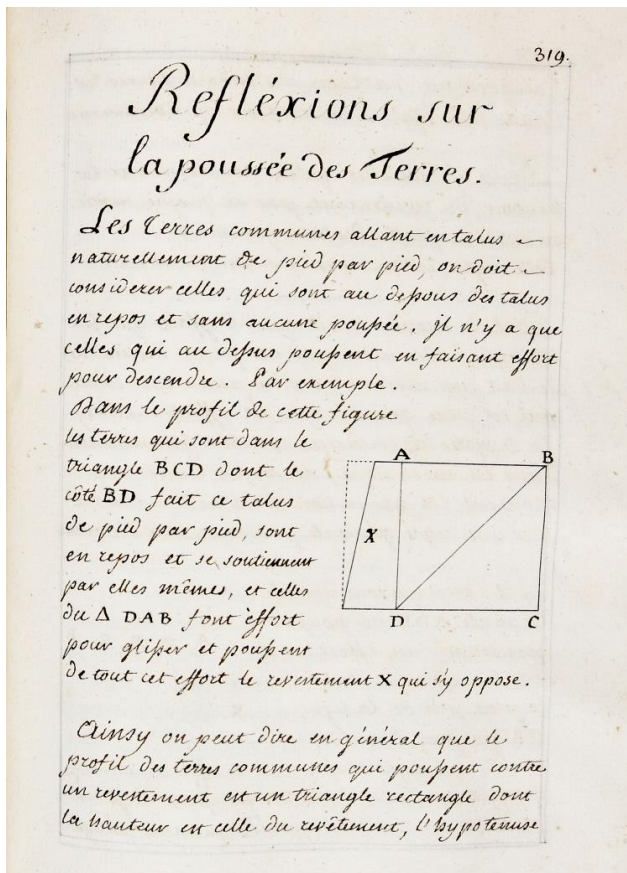 319.
Refléxions sur
la poussée des Terres.
Les Terres communes allant en talus
naturellement de pied par pied, on doit
considerer celles qui sont au dessous des talus
en repos et sans aucune poussée. Jl n'y a que
celles qui au dessus poussent en faisant effort
pour descendre. Par exemple.
Dans le profil de cette figure
les terres qui sont dans le
triangle BCD dont le
côté BD fait ce talus
de pied par pied, sont
en repos et se soutiennent
par elles mêmes, et celles
du Δ DAB font effort
pour glisser et poussent
de tout cet effort le revestement X qui s'y oppose.
A B
X
D C
Ainsy on peut dire en général que le
profil des terres communes qui poussent contre
un revestement est un triangle rectangle dont
la hauteur est celle du revêtement, l'hypotenuse